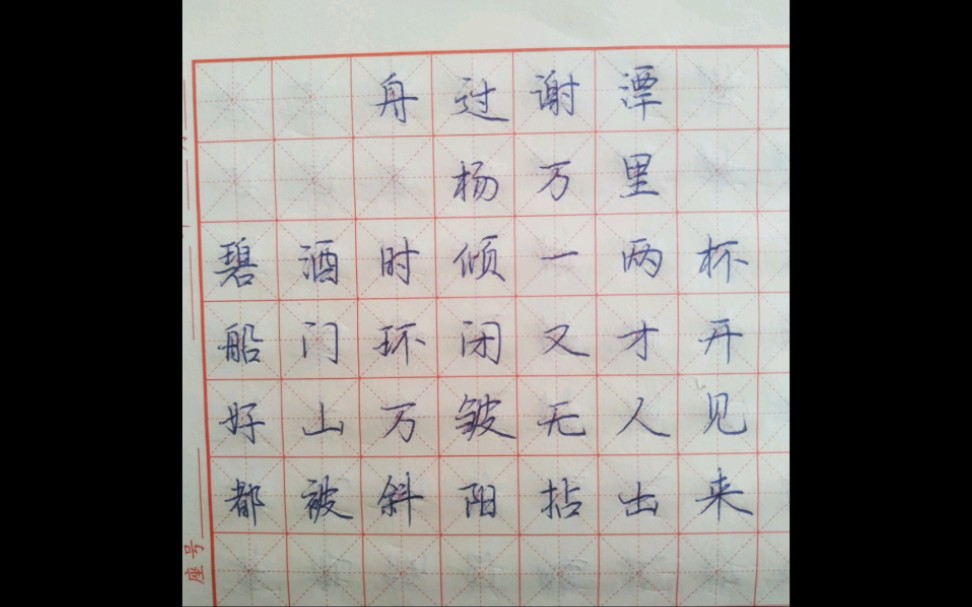 舟过谢潭
杨万里
碧酒时倾一两杯
船门环闭又才开
好山万皱无人见
都被斜阳拈出来
座号